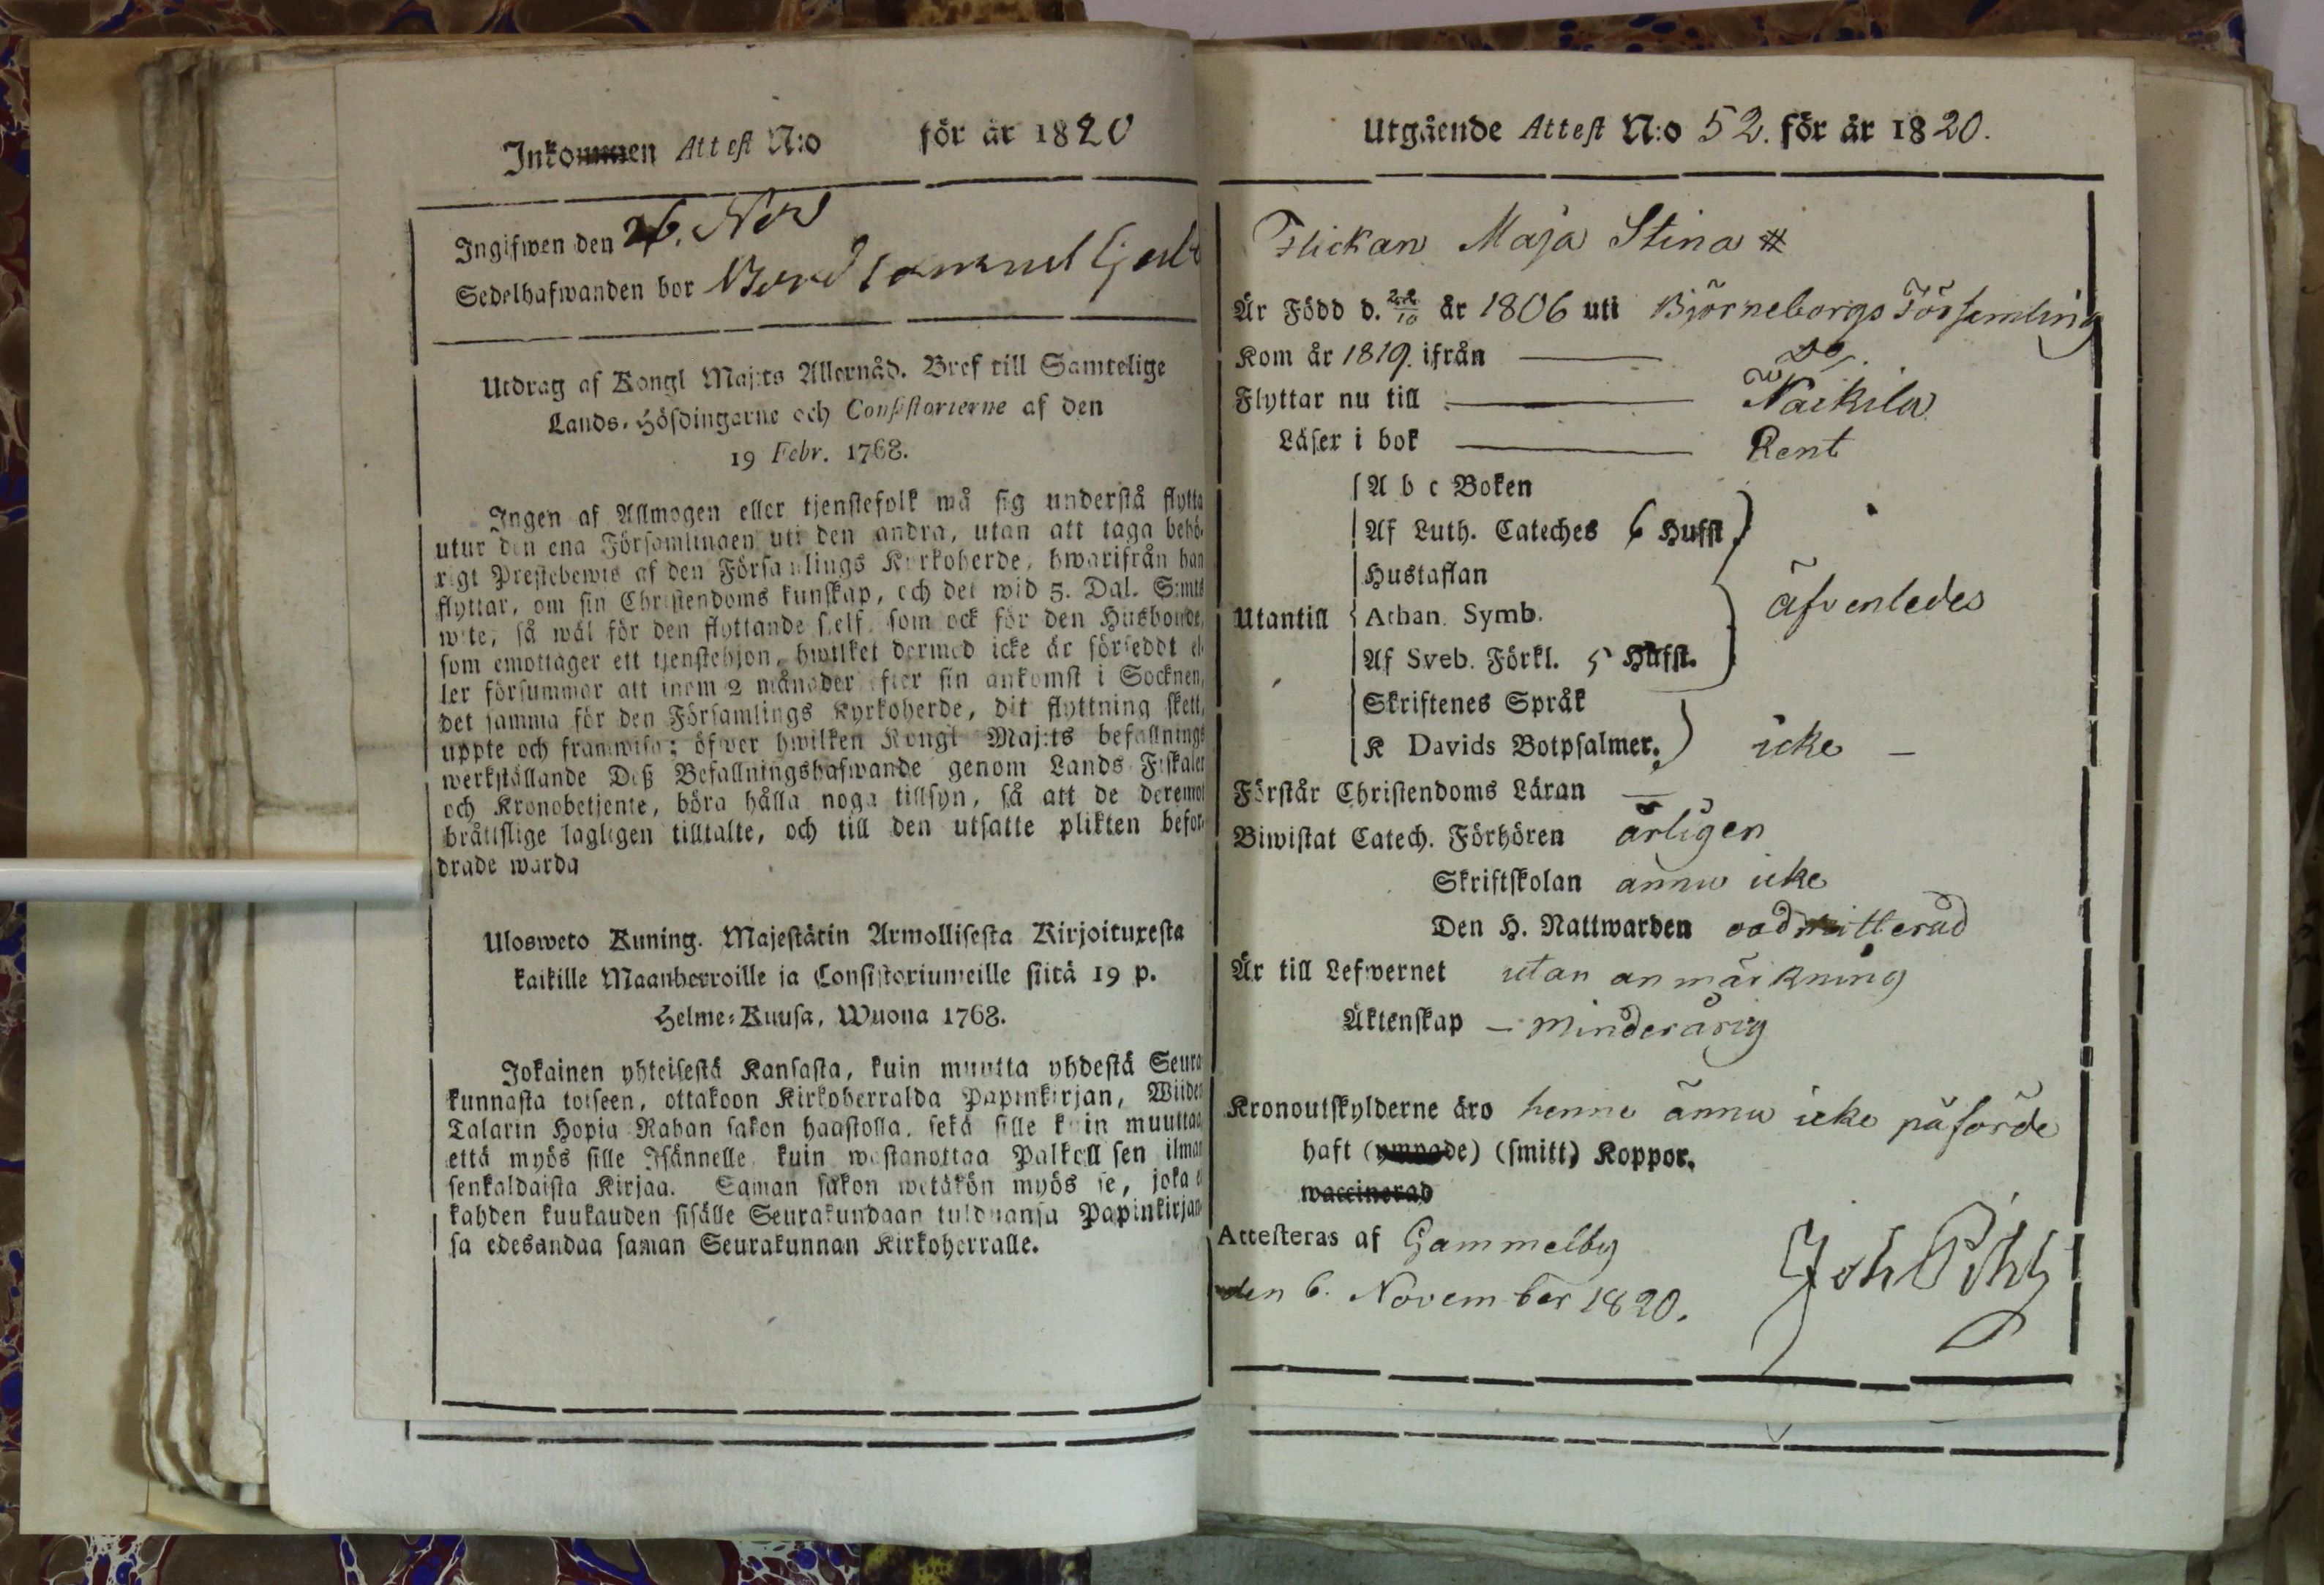 Inkommen Attest N:o för år 1820
Ingifwen den 26. Nov
Sedelhafwanden bor
Utdrag af Kongl Maj:ts Allernåd. Bref till Samtelige
Lands-Höfdingarne och Consistorierne af den
19 Febr. 1768.
Ingen af Allmogen eller tjenstefolk må sig understå flytta
utur den ena Församlingen uti den andra, utan att taga behö-
rigt Prestebewis af den Församlings Kyrkoherde, hwarifrån han
flyttar, om sin Christendoms kunskap, och det wid 5. Dal. S:mts
wite, så wäl för den flyttande sielf, som ock för den Husbonde,
som emottager ett tjenstehjon, hwilket dermed icke är försedt el-
ler försummar att inom 2 månader efter sin ankomst i Socknen,
det samma för den Församlings Kyrkoherde, dit flyttning skett,
uppte och framwisa; öfwer hwilken Kongl Maj:ts befallnings
werkställande Deß Befallningshafwande genom Lands Fiskaler
och Kronobetjente, böra hålla noga tillsyn, så att de deremot
bråttslige lagligen tilltalte, och till den utsatte plikten befor-
drade warda
Ulosweto Kuning. Majestätin Armollisesta Kirjoituxesta
kaikille Maanherroille ja Consistoriumeille siitä 19 p.
Helme-Kuusa, Wuona 1768.
Jokainen yhteisestä Kansasta, kuin muutta yhdestä Seura
kunnasta toiseen, ottakoon Kirkoherralda Papinkirjan, Wiiden
Talarin Hopia Rahan sakon haastolla, sekä sille kuin muuttaa
että myös sille Isännelle, kuin wastanottaa Palkoll sen ilman
senkaldaista Kirjaa. Saman sakon wetäkön myös se, joka e
kahden kuukauden sisälle Seurakundaan tulduansa Papinkirjan-
sa edesandaa saman Seurakunnan Kirkoherralle.
Utgående Attest N:o 52. för år 1820.
Flickan Maja Stina #
Är Född d. 22/10 år 1806 uti Björneborgs Församling
Kom år 1819. ifrån Do.
Flyttar nu till Nackila
Läser i bok Rent
A b c Boken
Af Luth. Cateches 6 Hufst
Hustaflan
Utantill Athan. Symb. äfvenledes
Af Sveb. Förkl. 5 Hufst.
Skriftenes Språk
K Davids Botpsalmer. icke –
Förstår Christendoms Läran —
Biwistat Catech. Förhören årligen
Skriftskolan ännu icke
Den H. Nattwarden oadmitterad
Är till Lefwernet utan anmärkning
Äktenskap – minderårig
Kronoutskylderne äro henne ännu icke påförde
haft (ympade) (smitt) Koppor.
waccinerad
Attesteras af Gammelby
den 6. November 1820. Joh Pihl